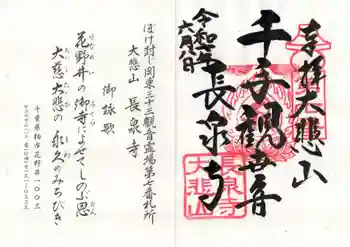 奉拝
大悲山
千手観世音
長泉寺
令和元年
六月
日
長泉寺
大悲山
ぼけ封じ関東三十三観音霊場第七番札所
大悲山 長泉寺
御詠歌
花野井の御寺によせてしのぶ恩
大慈大悲の永久のみちびき
千葉県柏市花野井一〇〇三